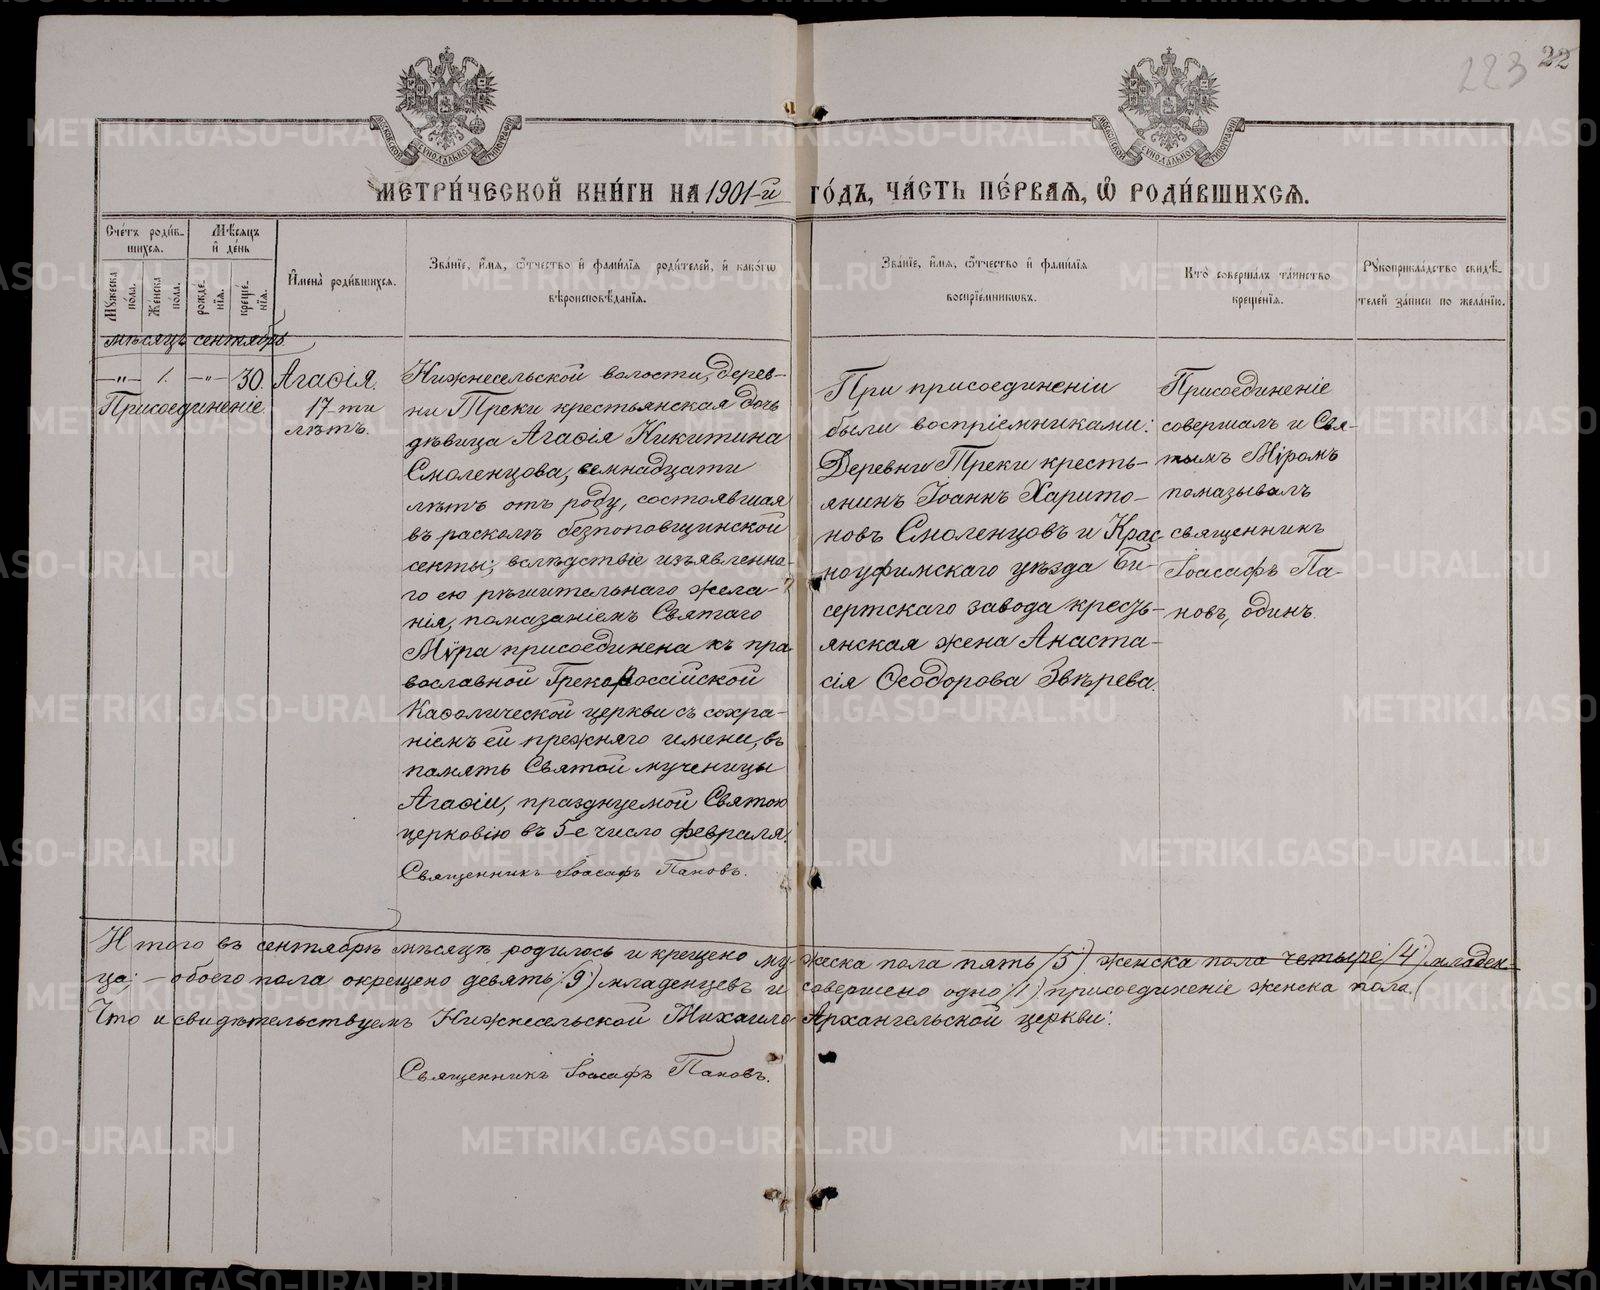 223 22
МЕТРИ́ЧЕСКОЙ КНИ́ГИ НА 1901-й ГО́ДЪ, ЧА́СТЬ ПЕ́РВАѦ, Ѿ РОДИ́ВШИХСѦ.
Сче́тъ роди́в-
шихсѧ.
Мѣ́сѧцъ
и҆ де́нь
Мꙋ́жеска по́ла.
Же́нска по́ла.
рожде́нїѧ.
креще́нїѧ.
И҆мена̀ роди́вшихсѧ.
Зва́нїе, и҆́мѧ, ѻ҆́тчество и҆ фами́лїѧ роди́телей, и҆ како́гѡ
вѣроисповѣ́данїѧ.
Зва́нїе, и҆́мѧ, ѻ҆́тчество и҆ фами́лїѧ
воспрїе́мникѡвъ.
Кто̀ соверша́лъ та́инство
креще́нїѧ.
Рꙋкоприкла́дство свидѣ́-
телей за́писи по жела́нїю.
мѣсяцъ сентябрь.
—"— 1. —"— 30. Агаѳія.
Присоединеніе.
17-ти
лѣтъ.
Нижнесельской волости, дерев-
ни Треки крестьянская дочь
дѣвица Агаѳія Никитина
Смоленцова, семнадцати
лѣтъ отъ роду, состоявшая
въ расколѣ безпоповщинской
секты; вслѣдствіе изъявленна-
го ею рѣшительнаго жела-
нія, помазаніемъ Святаго
Мѵра присоединена къ пра-
вославной Грекороссійской
Каѳолической церкви съ сохра-
ніемъ ей прежняго имени, въ
память Святой мученицы
Агаѳіи, празднуемой Святою
церковію въ 5-е число февраля.
Священникъ Іоасафъ Пановъ.
При присоединеніи
были воспріемниками:
Деревни Треки кресть-
янинъ Іоаннъ Харито-
новъ Смоленцовъ и Крас-
ноуфимскаго уѣзда Би-
сертскаго завода кресть-
янская жена Анаста-
сія Ѳеодорова Звѣрева.
Присоединеніе
совершалъ и Свя-
тымъ Мѵромъ
помазывалъ
священникъ
Іоасафъ Па-
новъ, одинъ.
Итого въ сентябрѣ мѣсяцѣ родилось и крещено му-жеска пола пять (5) женска пола четыре (4) младен-
ца; — обоего пола окрещено девять (9) младенцевъ и совершено одно (1) присоединеніе женска пола.
Что и свидѣтельствуемъ Нижнесельской Михаило-Архангельской церкви:
Священникъ Іоасафъ Пановъ.
METRIKI.GASO-URAL.RU